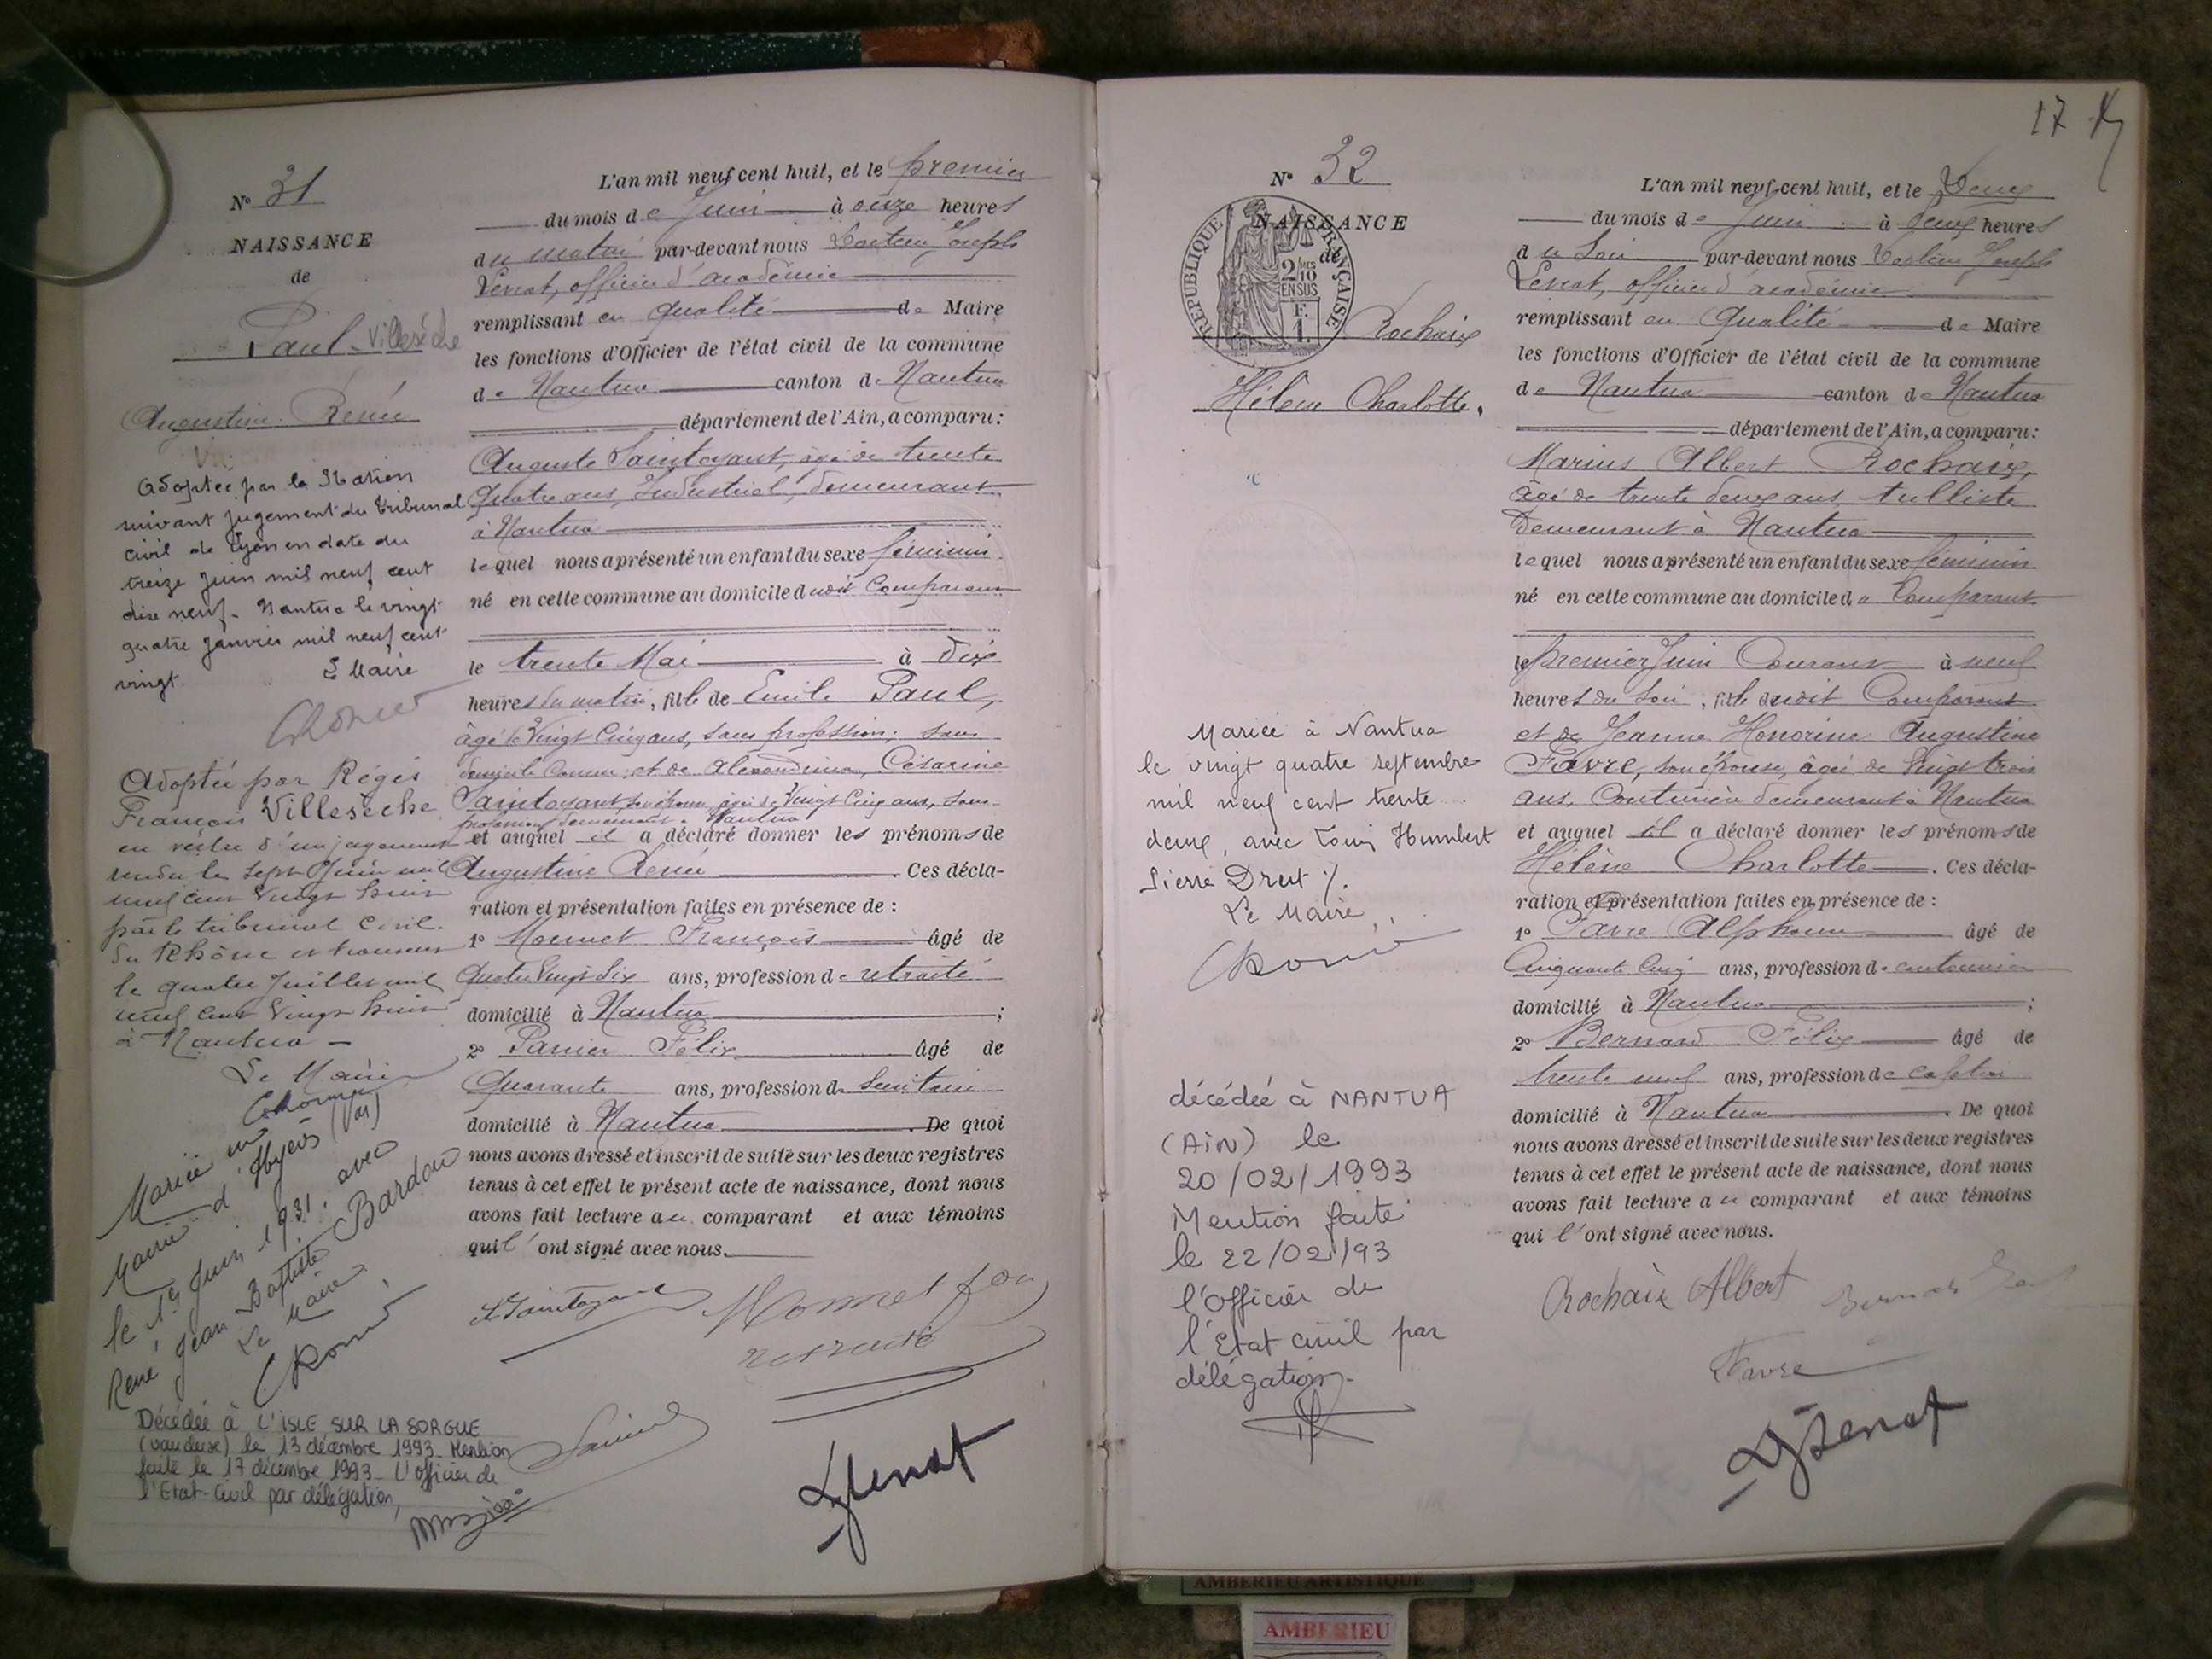 N° 31
NAISSANCE
de
Paul Villesèche
Augustine Renée
Adoptée par la Nation
suivant jugement du Tribunal
civil de Lyon en date du
treize juin mil neuf cent
dix neuf. Nantua le vingt
quatre janvier mil neuf cent
vingt
Le Maire
Adoptée par Régis
François Villesèche
en vertu d'un jugement
rendu le sept Juin mil
neuf cent vingt huit
par le tribunal civil
du Rhône et transcrit
le quatre Juillet mil
neuf cent vingt huit
à Nantua
Le Maire
Mariée en
Mairie d'Hyères (Var)
le 1er Juin 1931, avec
René Jean Baptiste Bardou
Le Maire
Décédée à L'ISLE SUR LA SORGUE
(Vaucluse) le 13 décembre 1993. Mention
faite le 17 décembre 1993. L'officier de
l'Etat-Civil par délégation,
L'an mil neuf cent huit, et le premier
du mois de Juin à onze heures
du matin par-devant nous Joseph
officier d'académie
remplissant en qualité de Maire
les fonctions d'Officier de l'état civil de la commune
de Nantua canton de Nantua
département de l'Ain, a comparu :
Auguste Saintoyant, âgé de trente
quatre ans, Industriel, demeurant
à Nantua
lequel nous a présenté un enfant du sexe féminin
né en cette commune au domicile dudit Comparant
le trente Mai à dix
heures du matin, fille de Emile Paul,
âgé de vingt cinq ans, sans profession, sans
domicile connu, et de Alexandrine, Césarine
Saintoyant son épouse, âgée de vingt cinq ans, sans
profession, demeurant à Nantua
et auquel il a déclaré donner les prénoms de
Augustine Renée. Ces décla-
ration et présentation faites en présence de :
1° François âgé de
quatre vingt six ans, profession de retraité
domicilié à Nantua ;
2° Félix âgé de
Quarante ans, profession de
domicilié à Nantua. De quoi
nous avons dressé et inscrit de suite sur les deux registres
tenus à cet effet le présent acte de naissance, dont nous
avons fait lecture au comparant et aux témoins
qui l'ont signé avec nous.
A Saintoyant
retraité
17
N° 32
NAISSANCE
de
RÉPUBLIQUE FRANÇAISE
2/10 MES
EN SUS
F.
1.
Rochaix
Hélène Charlotte.
Mariée à Nantua
le vingt quatre septembre
mil neuf cent trente
deux, avec Louis Humbert
Pierre Drut
Le Maire
décédée à NANTUA
(AIN) le
20/02/1993
Mention faite
le 22/02/93
l'officier de
l'Etat civil par
délégation.
L'an mil neuf cent huit, et le Deux
du mois de Juin à deux heures
du Soir par-devant nous Joseph
officier d'académie
remplissant en qualité de Maire
les fonctions d'Officier de l'état civil de la commune
de Nantua canton de Nantua
département de l'Ain, a comparu :
Marius Albert Rochaix,
âgé de trente deux ans, tulliste
demeurant à Nantua
lequel nous a présenté un enfant du sexe féminin
né en cette commune au domicile du Comparant
le premier Juin Courant à neuf
heures du soir, fille dudit Comparant
et de Jeanne Honorine Augustine
Favre, son épouse, âgée de vingt trois
ans, Couturière demeurant à Nantua
et auquel il a déclaré donner les prénoms de
Hélène Charlotte. Ces décla-
ration et présentation faites en présence de :
1° Favre Alphonse âgé de
Cinquante cinq ans, profession de cantonnier
domicilié à Nantua ;
2° Bernard Félix âgé de
trente neuf ans, profession de
domicilié à Nantua. De quoi
nous avons dressé et inscrit de suite sur les deux registres
tenus à cet effet le présent acte de naissance, dont nous
avons fait lecture au comparant et aux témoins
qui l'ont signé avec nous.
Rochaix Albert
Favre
AMBERIEU ARTISTIQUE
AMBERIEU